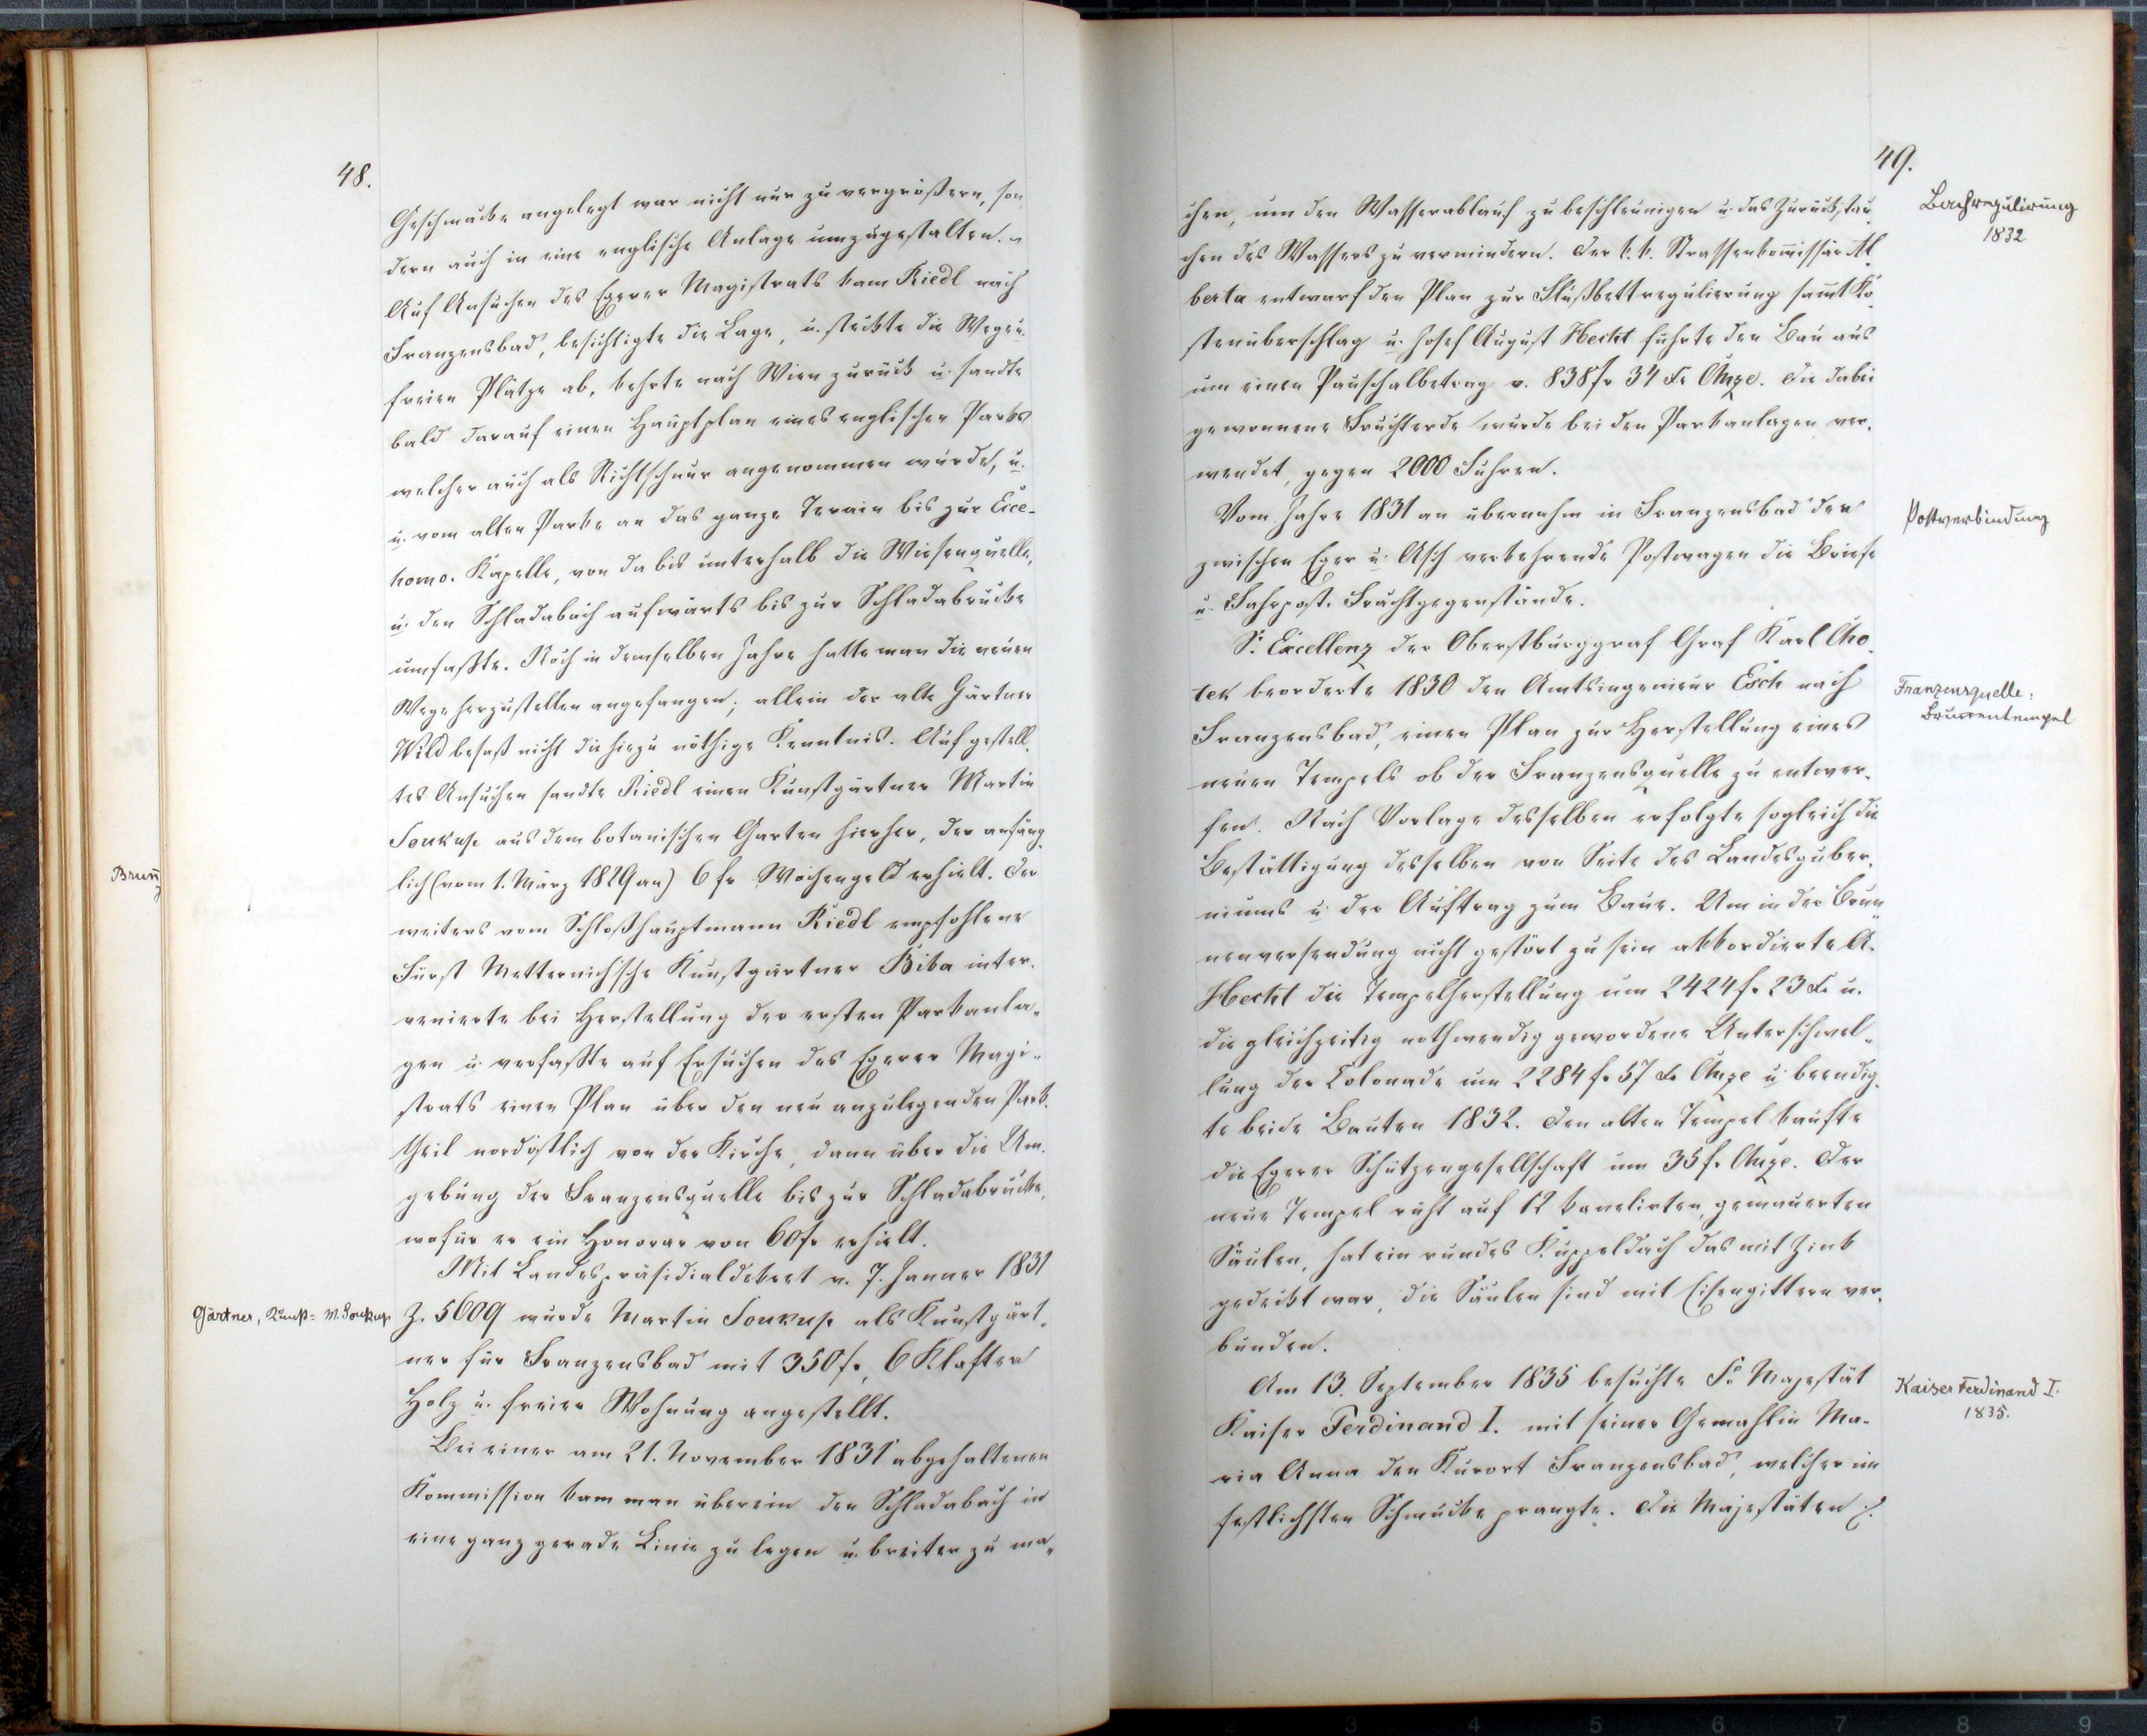 48.
Geschmacke angelegt war nicht nur zu vergrößern, son-
dern auch in eine englische Anlage umzugestalten.
Auf Ansuchen des Egerer Magistrats kam Riedl nach
Franzensbad, besichtigte die Lage, u. steckte die Wege u.
freien Plätze ab, kehrte nach Wien zurück u. sandte
bald darauf einen Hauptplan eines englischen Parks
welcher auch als Richtschnur angenommen wurde, u.
u. vom alten Parke an das ganze Terain bis zur Ecce-
homo-Kapelle, von da bis unterhalb die Wiesenquelle,
u. den Schladabach aufwärts bis zur Schladabrücke
umfaßte. Noch in demselben Jahre hatte man die neuen
Wege herzustellen angefangen; allein der alte Gärtner
Wild besaß nicht die hiezu nöthige Kenntnis. Auf gestell-
tes Ansuchen sandte Riedl einen Kunstgärtner Martin
Soukup aus dem botanischen Garten hierher, der anfäng-
lich (vom 1. März 1829 an) 6 fr Wochengeld erhielt. Der
weiters vom Schloßhauptmann Riedl empfohlene
Fürst Metternich'sche Kunstgärtner Riba inter-
venierte bei Herstellung der ersten Parkanla-
gen u. verfaßte auf Ersuchen des Egerer Magi-
strats einen Plan über den neu anzulegenden Park-
theil nordöstlich von der Kirche, dann über die Um-
gebung der Franzensquelle bis zur Schladabrücke,
wofür er ein Honorar von 60 fr erhielt.
Mit Landespräsidialdekret v. 7. Janner 1831
Gärtner, Kunst- M. Soukup
Z. 5609 wurde Martin Soukup als Kunstgärt-
ner für Franzensbad mit 350 fr, 6 Klafter
Holz u. freier Wohnung angestellt.
Bei einer am 21. November 1831 abgehaltenen
Kommission kam man überein den Schladabach in
eine ganz gerade Linie zu legen u. breiter zu ma-
Brun
49.
chen, um den Wasserablauf zu beschleunigen u. das Zurückstau-
Bachregulirung
1832
chen des Wassers zu vermindern. Der k. k. Strassenkom̄issär Al-
berta entwarf den Plan zur Flußbettregulierung sam̄t Ko-
stenüberschlag u. Josef August Hecht führte den Bau aus
um einen Pauschalbetrag v. 838 fr 34 Xr CMze. Die dabei
gewonnene Fruchterde wurde bei den Parkanlagen ver-
wendet, gegen 2000 Fuhren.
Vom Jahre 1831 an übernahm in Franzensbad der
Postverbindung
zwischen Eger u. Asch verkehrende Postwagen die Briefe
u. Fahrpost-Frachtgegenstände.
Sr. Excellenz der Oberstburggraf Graf Karl Cho-
tek beorderte 1830 den Amtsingenieur Esch nach
Franzensquelle:
Brunnentempel
Franzensbad, einen Plan zur Herstellung eines
neuen Tempels ob der Franzensquelle zu entwer-
fen. Nach Vorlage desselben erfolgte sogleich die
Bestättigung desselben von Seite des Landesguber-
niums u. der Auftrag zum Baue. Um in der Brun-
nenversendung nicht gestört zu sein akkordierte A.
Hecht die Tempelherstellung um 2424 fr 23 Xr u.
die gleichzeitig nothwendig gewordene Unterschwel-
lung der Colonade um 2284 fr 57 Xr CMze u. beendig-
te beide Bauten 1832. Den alten Tempel kaufte
die Egerer Schützengesellschaft um 35 fr CMze. Der
neue Tempel ruht auf 12 kanelirten, gemauerten
Säulen, hat ein rundes Kuppeldach das mit Zink
gedeckt war, die Säulen sind mit Eisengittern ver-
bunden.
Am 13. September 1835 besuchte Se Majestät
Kaiser Ferdinand I.
1835.
Kaiser Ferdinand I. mit seiner Gemahlin Ma-
ria Anna den Kurort Franzensbad, welcher im
festlichsten Schmucke prangte. Die Majestäten